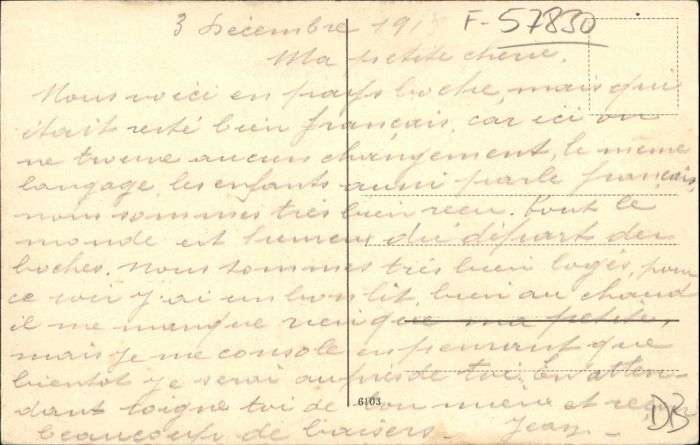 3 Décembre 191
F-57830
Ma petite chérie,
Nous voici en pays boche, mais qui
était resté bien français, car ici on
ne trouve aucun changement, le même
langage, les enfants aussi parle français,
nous sommes très bien reçu. Tout le
monde est heureux du départ des
boches. Nous sommes très bien logés, pour
ce soir j'ai un bon lit, bien au chaud
il me manque rien que ma petite,
mais je me console en pensant que
bientôt je serai auprès de toi. En atten-
dant soigne toi de ton mieux et reçois
beaucoup de baisers. Jean
6103
DB